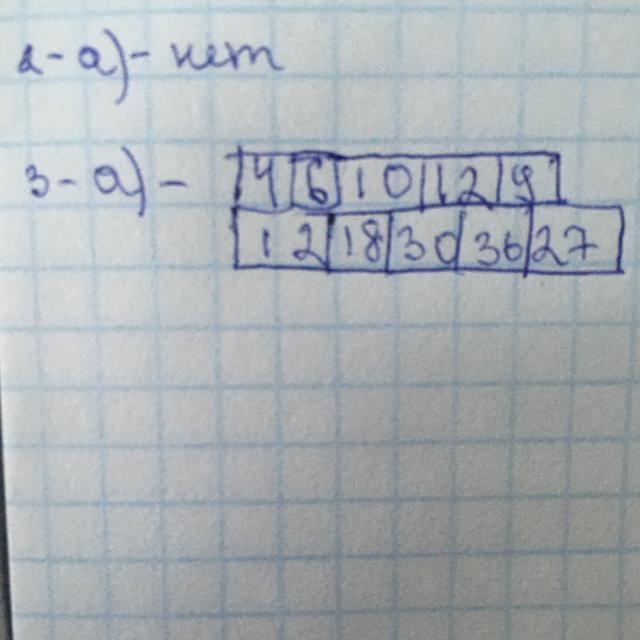 2-а)- нет
3-а)- 4 6 10 12 9
12 18 30 36 27